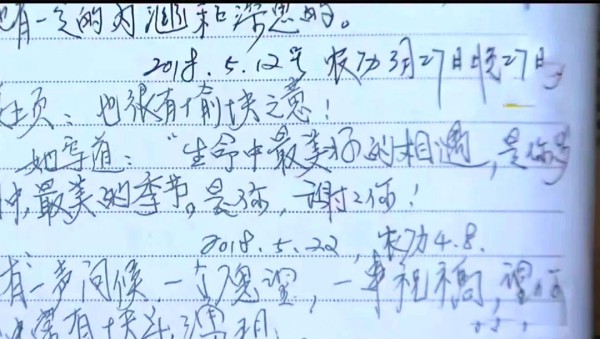 也有一定的内涵和深思的。
2018.5.12号 农历3月27日晚27日
页：也很有愉快之意！
她写道："生命中最美好的相遇，是你
中，最美的季节。是你，谢谢你！
2018.5.22，农历4.8.
有一声问候，一个愿望，一串祝福，
常有快乐